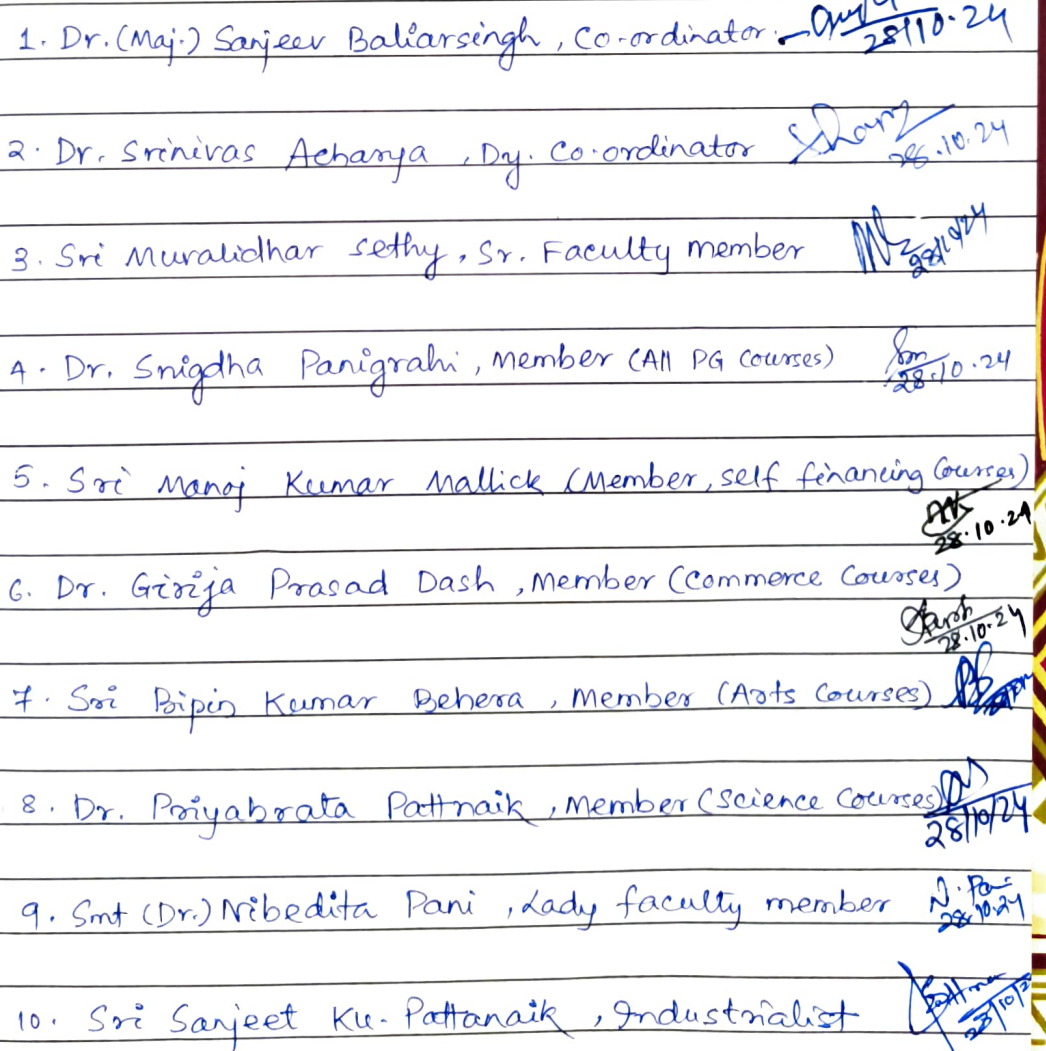 1. Dr. (Maj:) Sanjeev Baliarsingh, Co-ordinator. 28/10.24
2. Dr. Srinivas Acharya, Dy. Co-ordinator 28.10.24
3. Sri Muralidhar Sethy, Sr. Faculty member 28/10/24
4. Dr. Snigdha Panigrahi, Member (All PG Courses) 28.10.24
5. Sri Manoj Kumar Mallick (Member, self financing Courses)
28.10.24
6. Dr. Girija Prasad Dash, Member (Commerce Courses)
28.10.24
7. Sri Bipin Kumar Behera, Member (Arts Courses)
8. Dr. Priyabrata Pattnaik, Member (Science Courses)
28/10/24
9. Smt (Dr.) Nibedita Pani, Lady faculty member N. Pani
28.10.24
10. Sri Sanjeet Ku. Pattanaik, Industrialist